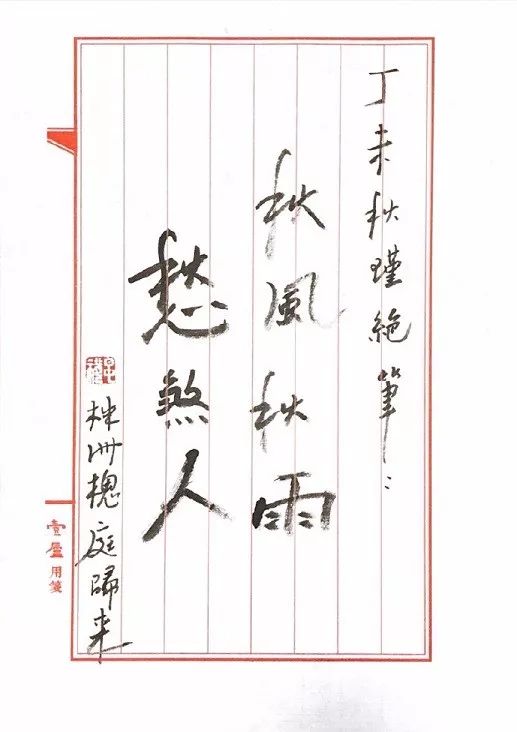 丁未秋瑾絶筆：
秋風秋雨
愁煞人
株洲槐庭歸来
壹廬用箋